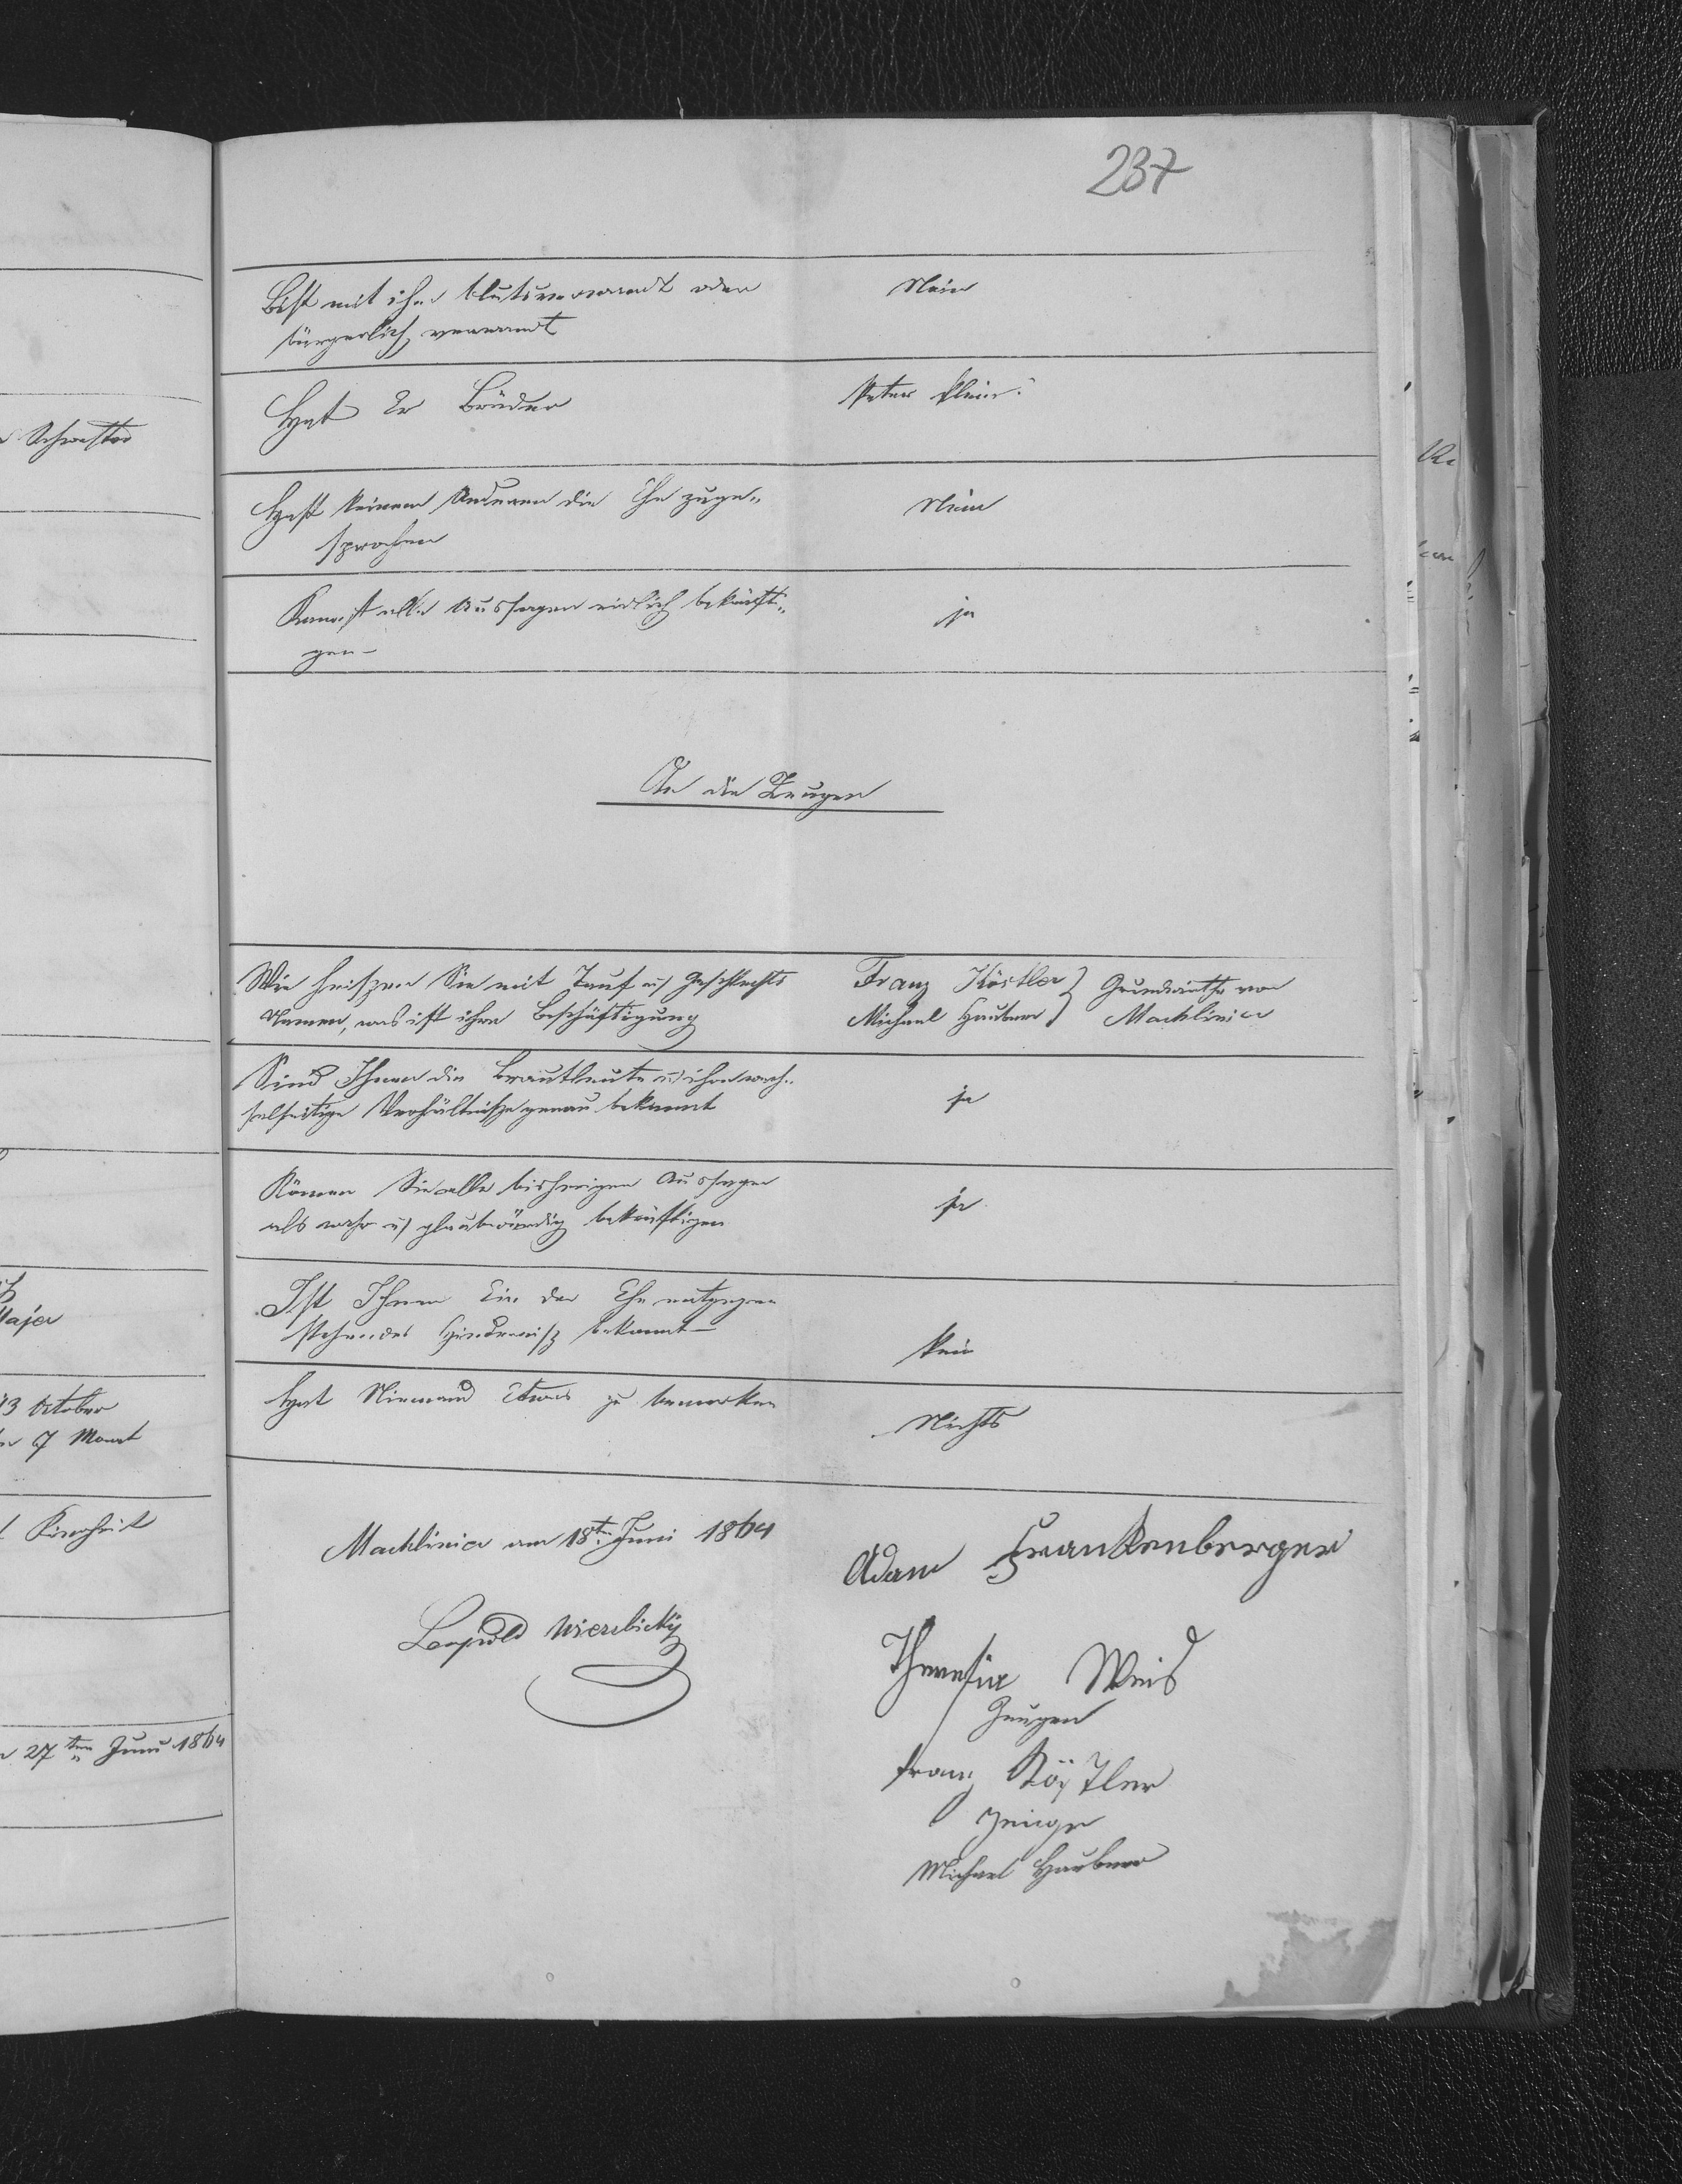 237
Bist mit ihm blutsverwandt oder
bürgerlich verwandt
Nein
Hat Er Brüder
Peter klein.
Hast keinem Anderen die Ehe zuge„
sprochen
Nein
Kannst alle Aussagen eidlich bekräfti„
gen –
ja
An die Zeugen
Wie heiszen Sie mit Tauf u Geschlechts
Namen, was ist ihre Beschäftigung
Franz Köstler
Michael Haubner
Grundwirthe von
Machliniec
Sind Ihnen die Brautleute u ihre wech„
selseitige Verhältnisze genau bekannt
ja
Können Sie alle bisherigen Aussagen
als wahr u glaubwürdig bekräftigen
ja
Ist Ihnen Ein der Ehe entgegen
stehendes Hindernisz bekannt –
kein
Hat Niemand Etwas zu bemerken
Nichts
Machliniec am 18ten Juni 1864
Leopold Wierzbicky
Adam Frankenberger
Theresia Weis
Zeugen
Franz Köstler
Zeuge
Michael Haubner
Schwester
Majer
13 October
7 Monat
27ten Juni 1864